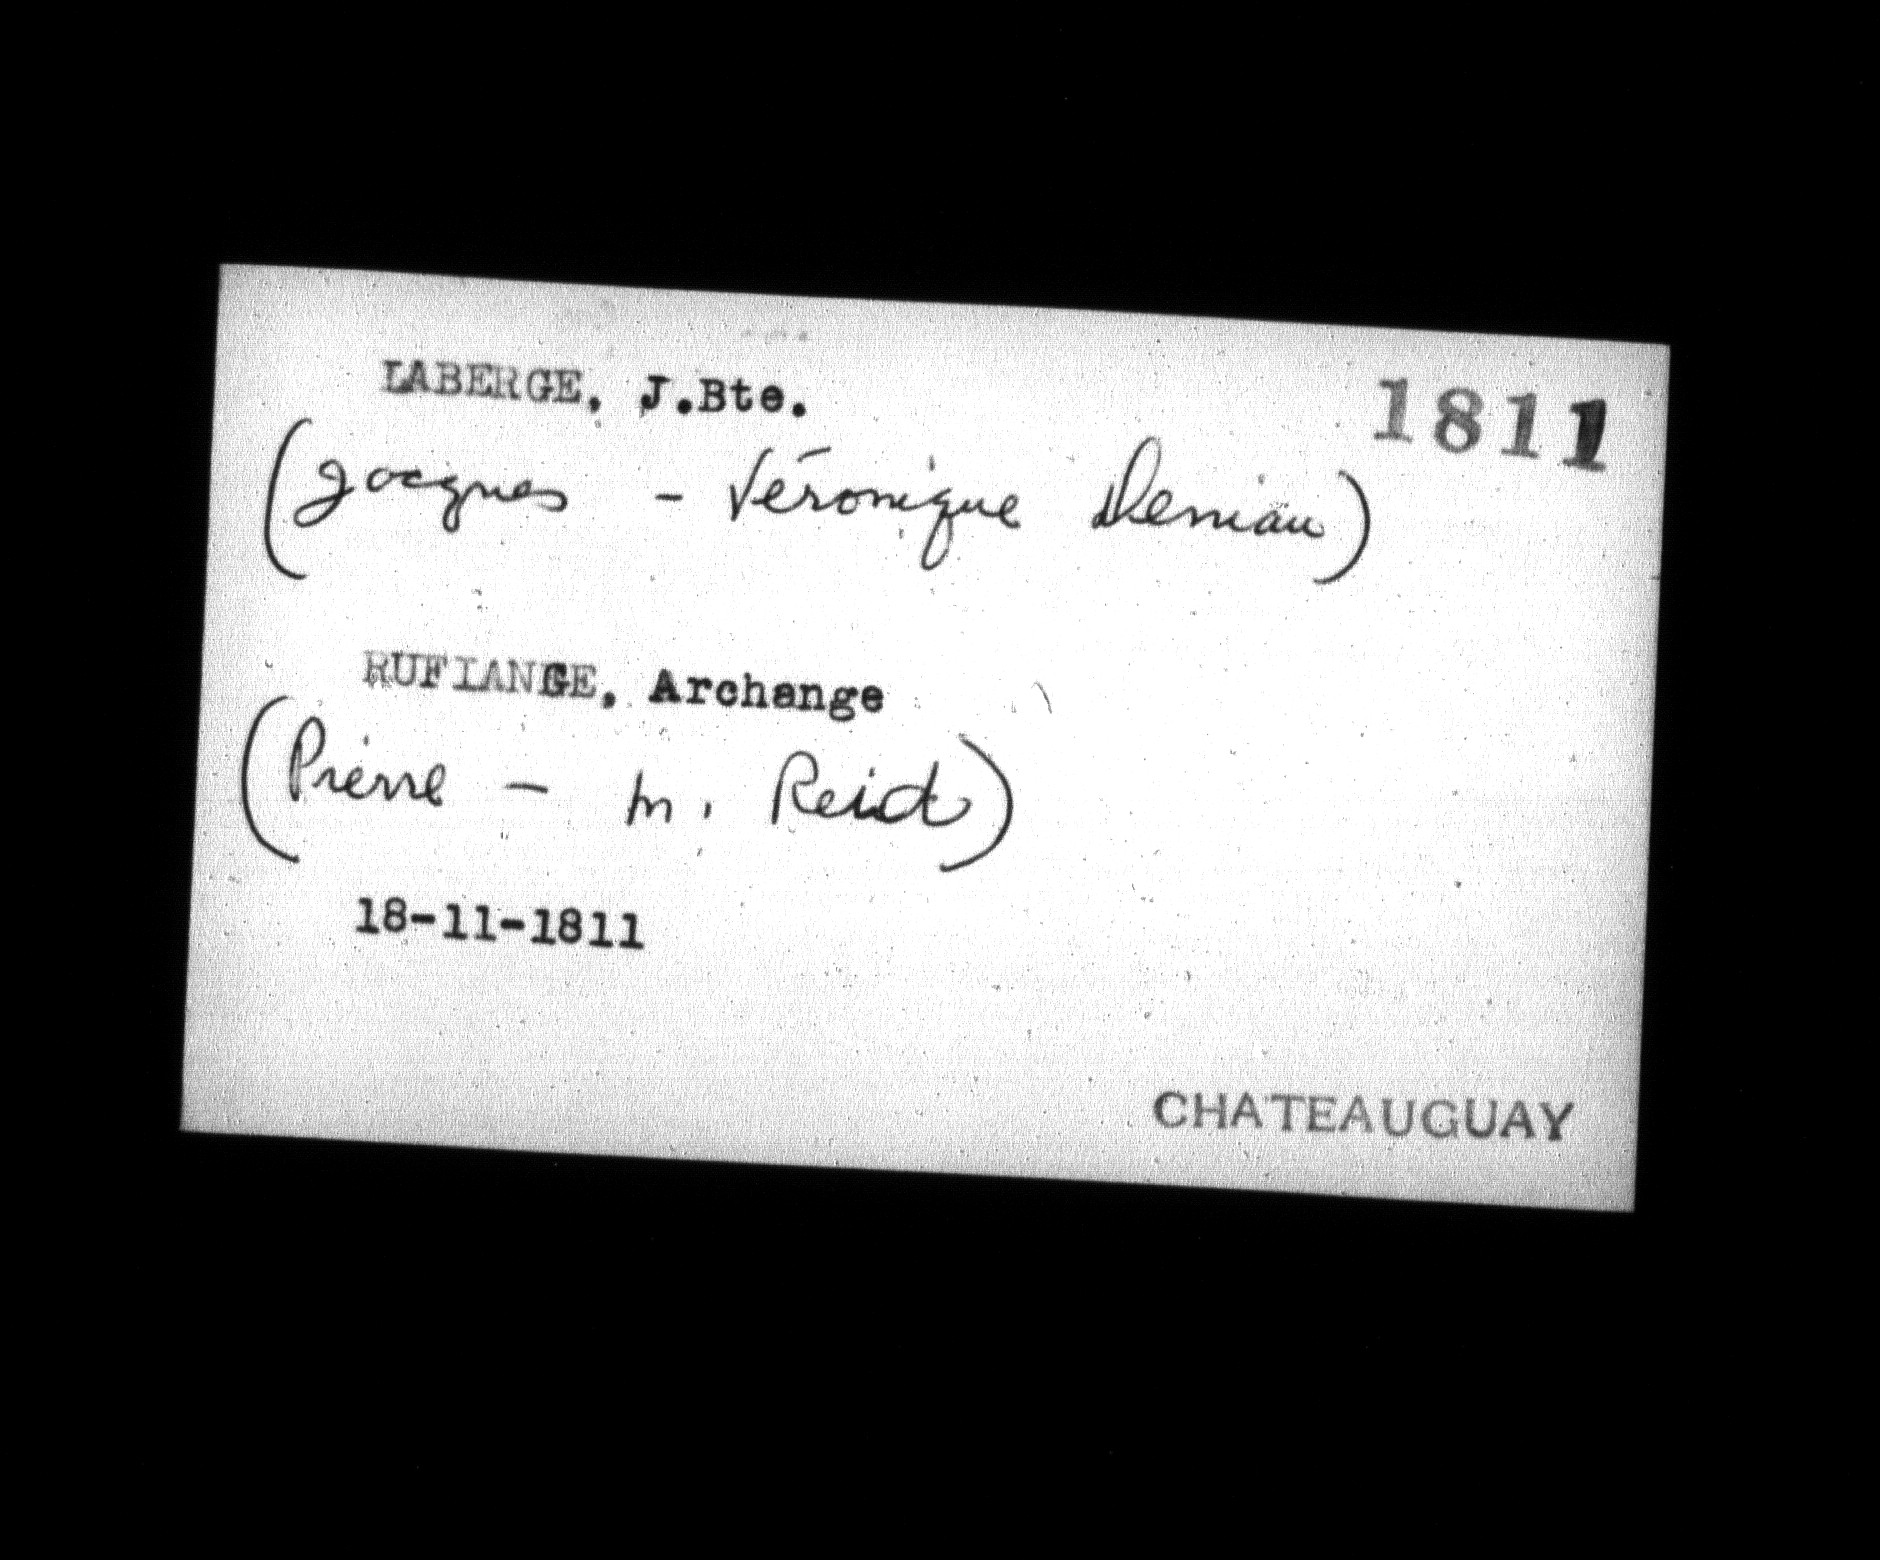 LABERGE, J.Bte.
1811
(Jacques - Véronique Deniau)
RUFIANGE, Archange
(Pierre - m. Reid)
18-11-1811
CHATEAUGUAY